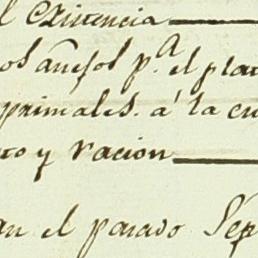 l Existencia
os añejos p.ª el plat
primales. a' la cu
to y racion
an el pasado Sep